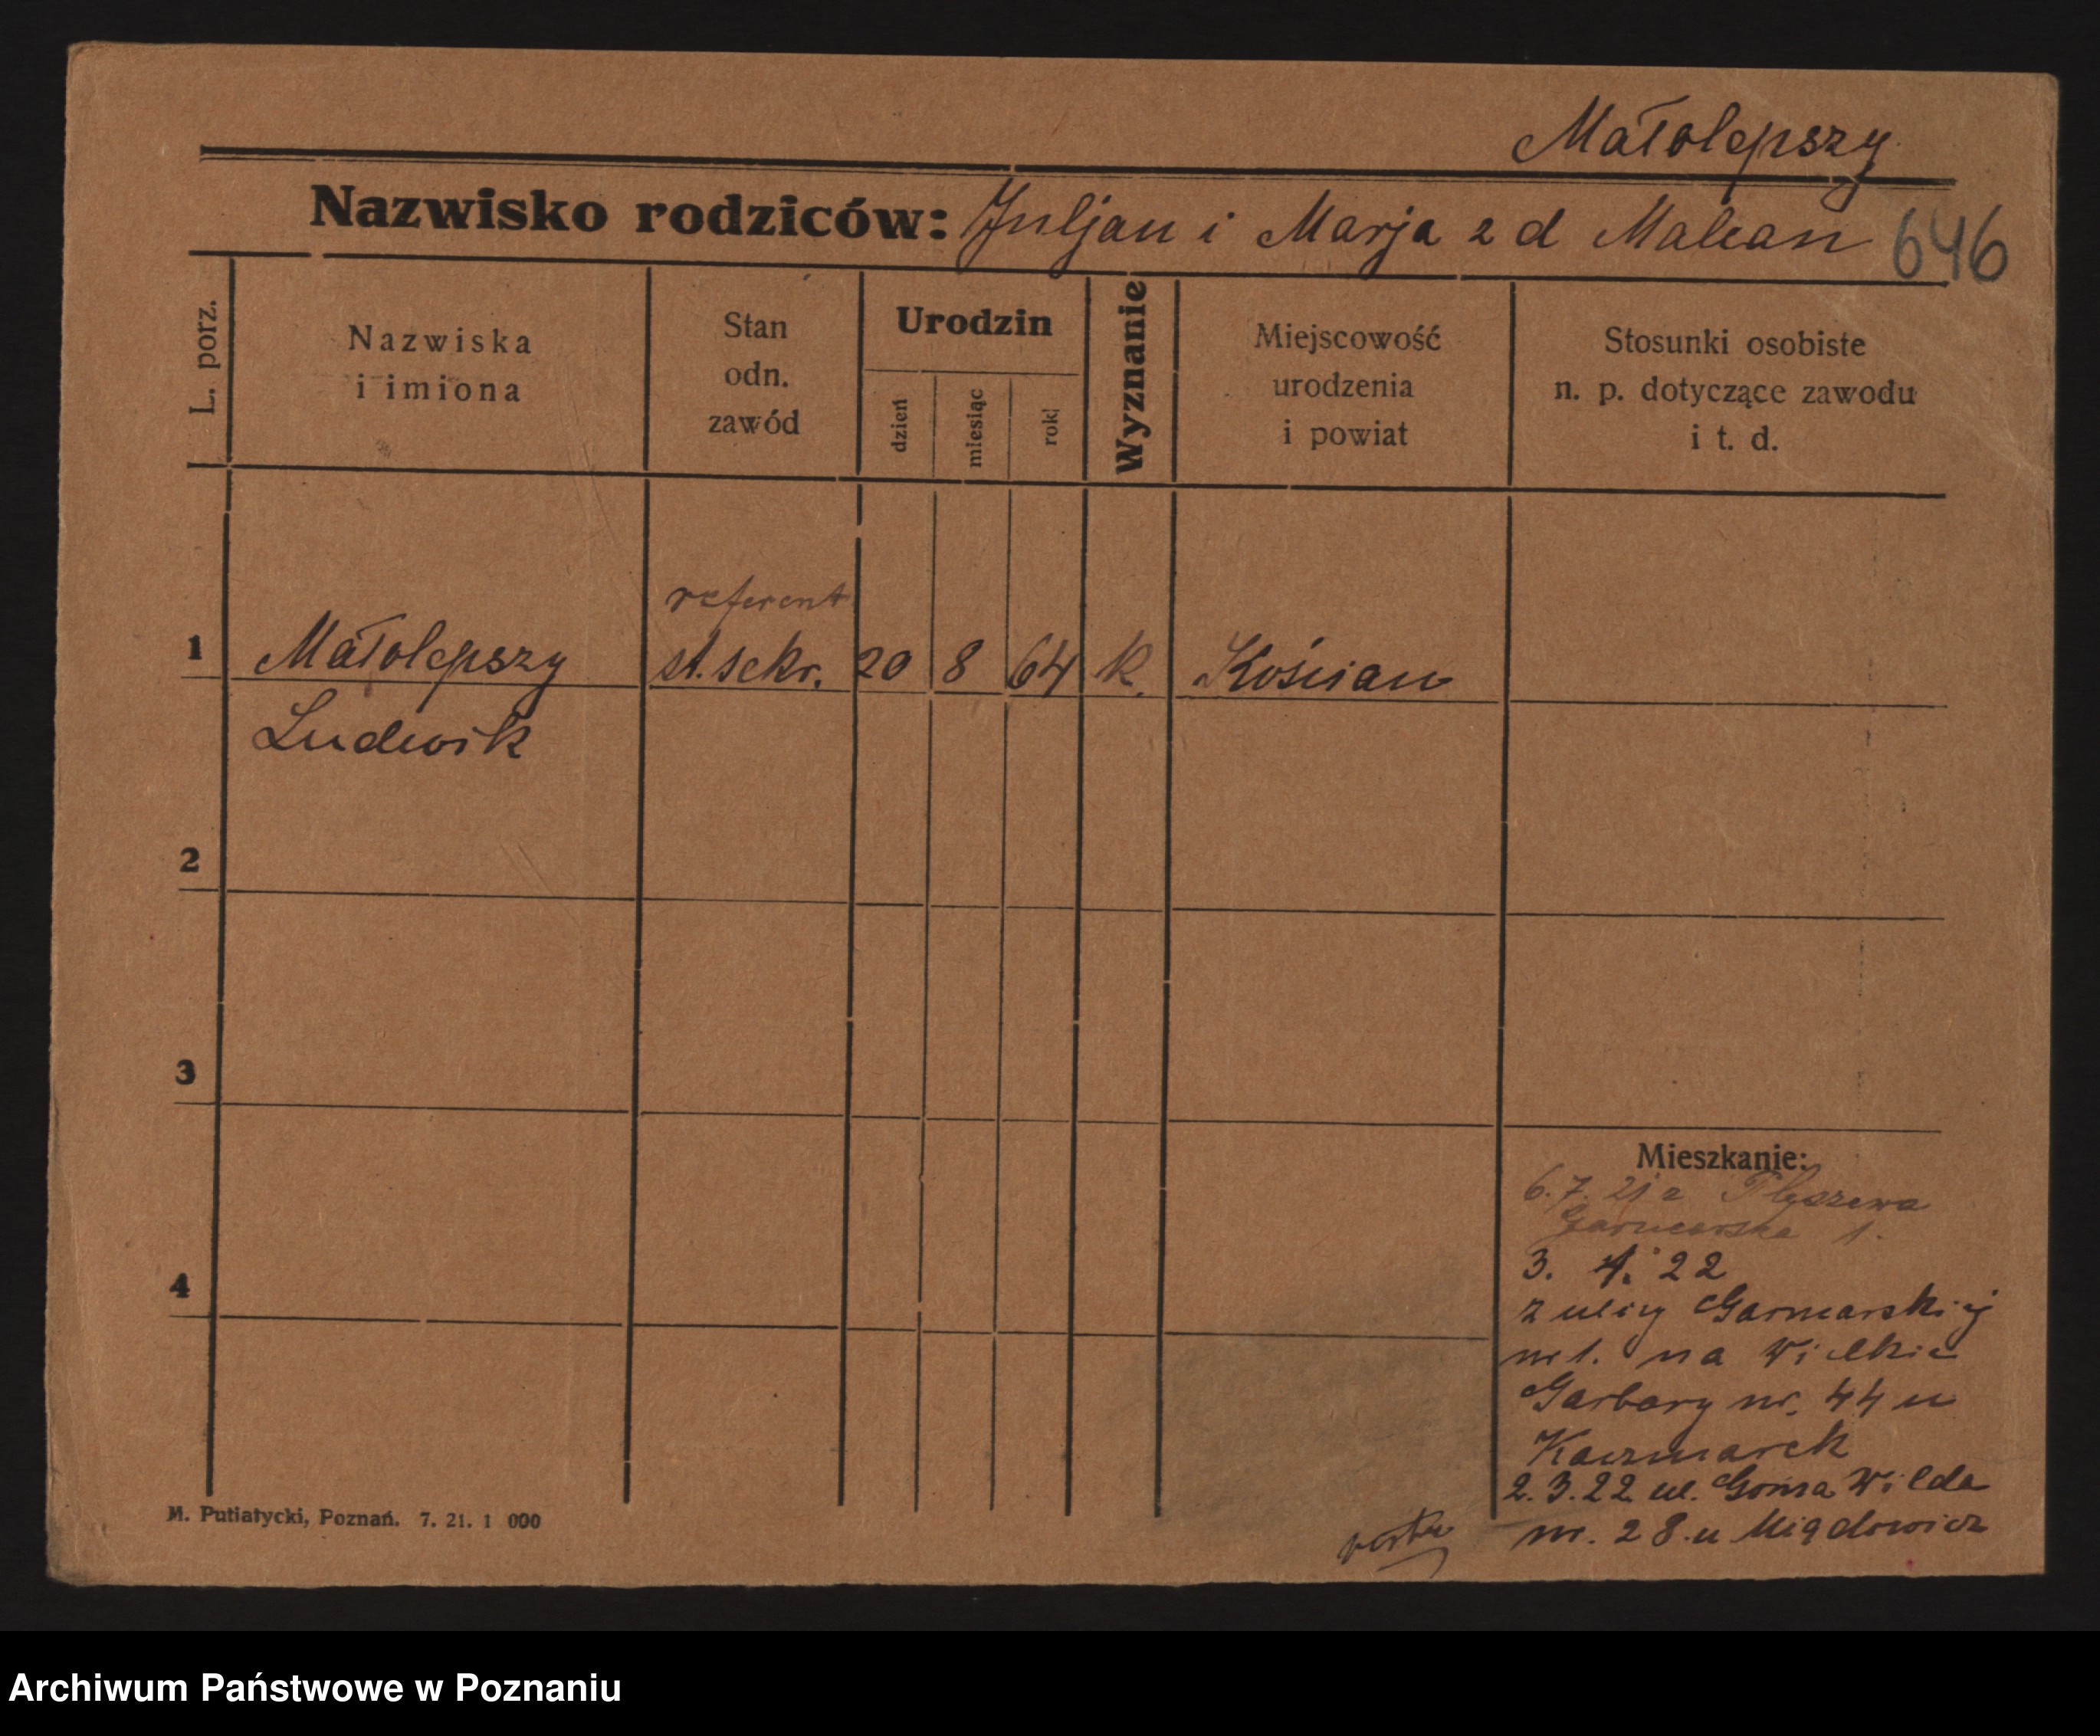 Małolepszy
Nazwisko rodziców: Juljan i Marja z d Malcan 646
L. porz.
Nazwiska
i imiona
Stan
odn.
zawód
Urodzin
dzień
miesiąc
rok
Wyznanie
Miejscowość
urodzenia
i powiat
Stosunki osobiste
n. p. dotyczące zawodu
i t. d.
referent
1 Małolepszy st. sekr. 20 8 64 k. Kościan
Ludwik
2
3
4
Mieszkanie:
6. 7. 21 z Pleszewa
Garncarska 1.
3. 1. 22
z ulicy Garncarskiej
nr 1. na Wielkie
Garbary nr. 44 u
Kaczmarek
2. 3. 22 ul. Górna Wilda
nr. 28 u Migdowicz
M. Putiatycki, Poznań. 7. 21. 1 000
Archiwum Państwowe w Poznaniu